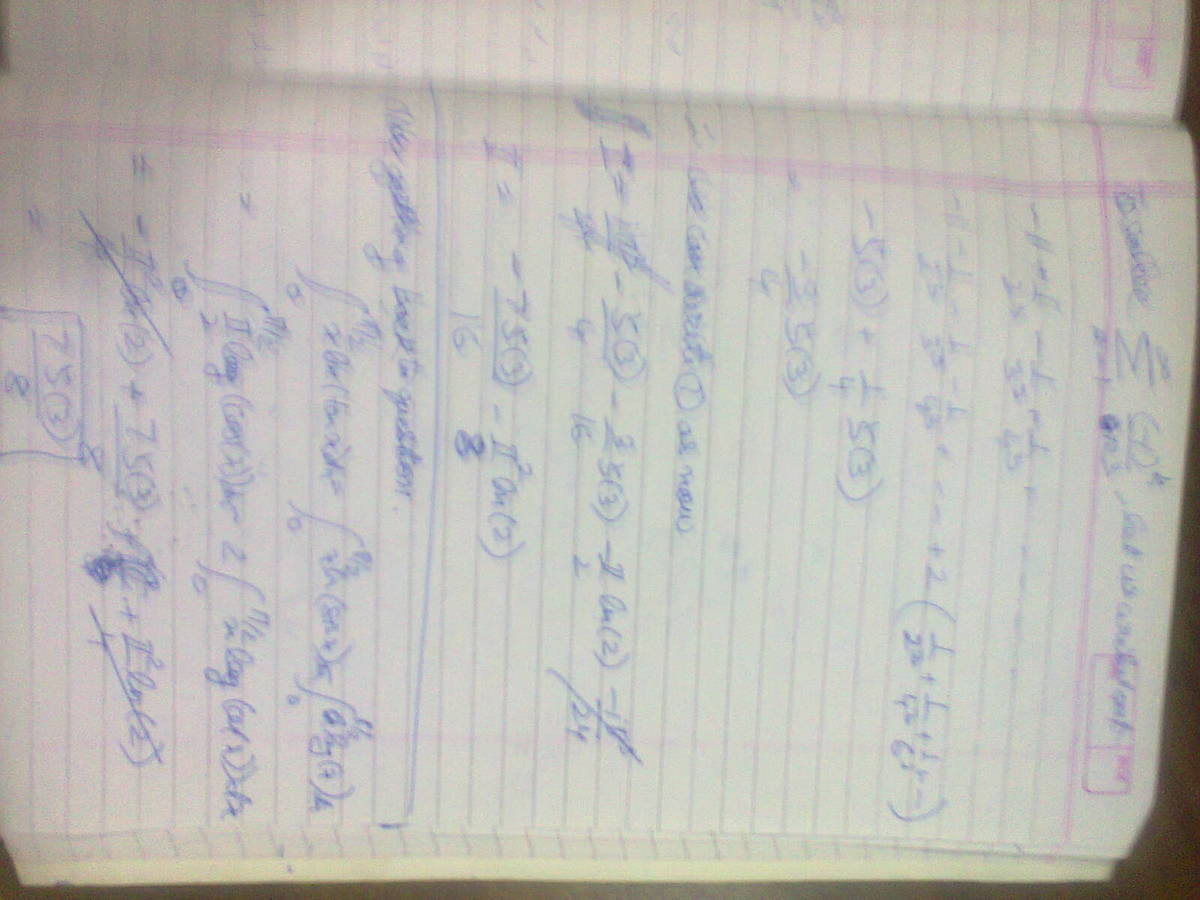 To solve \sum_{n=1}^{\infty} \frac{(-1)^n}{n^3} let us write it out
-1 + \frac{1}{2^3} - \frac{1}{3^3} + \frac{1}{4^3} - - - - -
-1 - \frac{1}{2^3} - \frac{1}{3^3} - \frac{1}{4^3} - - - + 2 ( \frac{1}{2^3} + \frac{1}{4^3} + \frac{1}{6^3} - - )
-ζ(3) + \frac{1}{4} ζ(3)
= -\frac{3}{4} ζ(3)
∴ we can write ① as now
I = - \frac{ζ(3)}{4} - \frac{3}{16} ζ(3) - \frac{π}{2} ln(2)
I = -\frac{7ζ(3)}{16} - \frac{π^2}{8} ln(2)
Now getting back to question.
\int_0^{π/2} x ln(tan x) dx = \int_0^{π/2} x ln(sin x) dx \int_0^{π/2} x log(x) dx
= \int_0^{π/2} \frac{π}{2} log(cos(x)) dx - 2 \int_0^{π/2} x log(cos x) dx
= -\frac{π^2}{4} ln(2) + \frac{7ζ(3)}{8} + \frac{π^2 ln(2)}{4}
= \frac{7ζ(3)}{8}